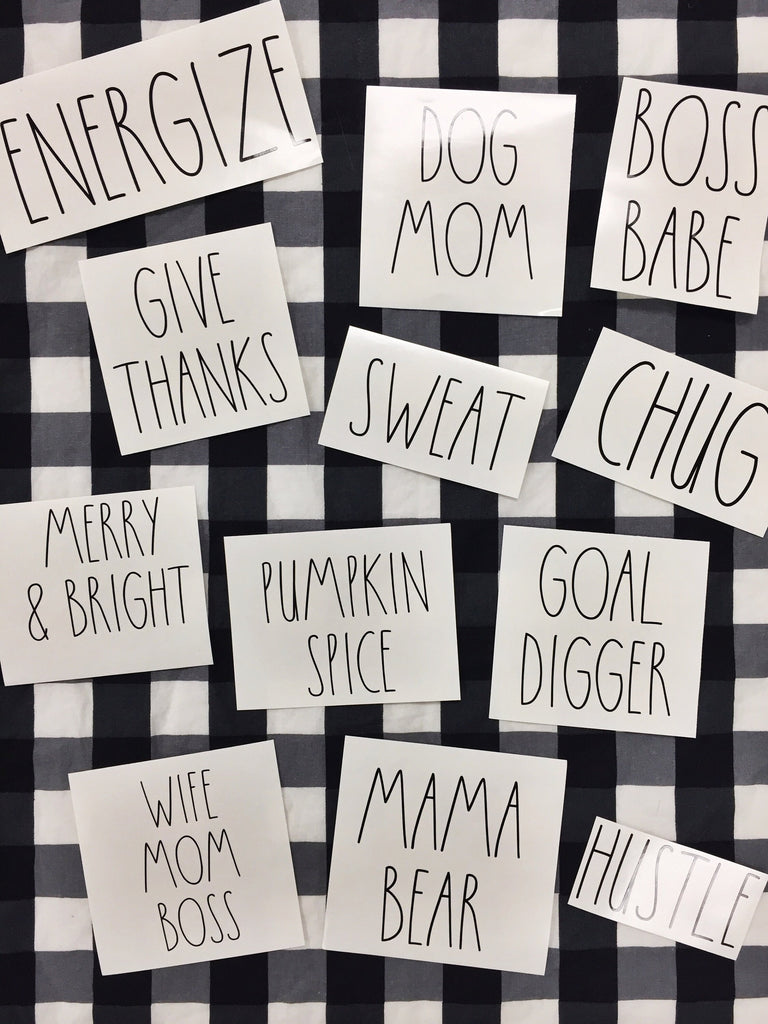 ENERGIZE
DOG
MOM
BOSS
BABE
GIVE
THANKS
SWEAT
CHUG
MERRY
& BRIGHT
PUMPKIN
SPICE
GOAL
DIGGER
WIFE
MOM
BOSS
MAMA
BEAR
HUSTLE